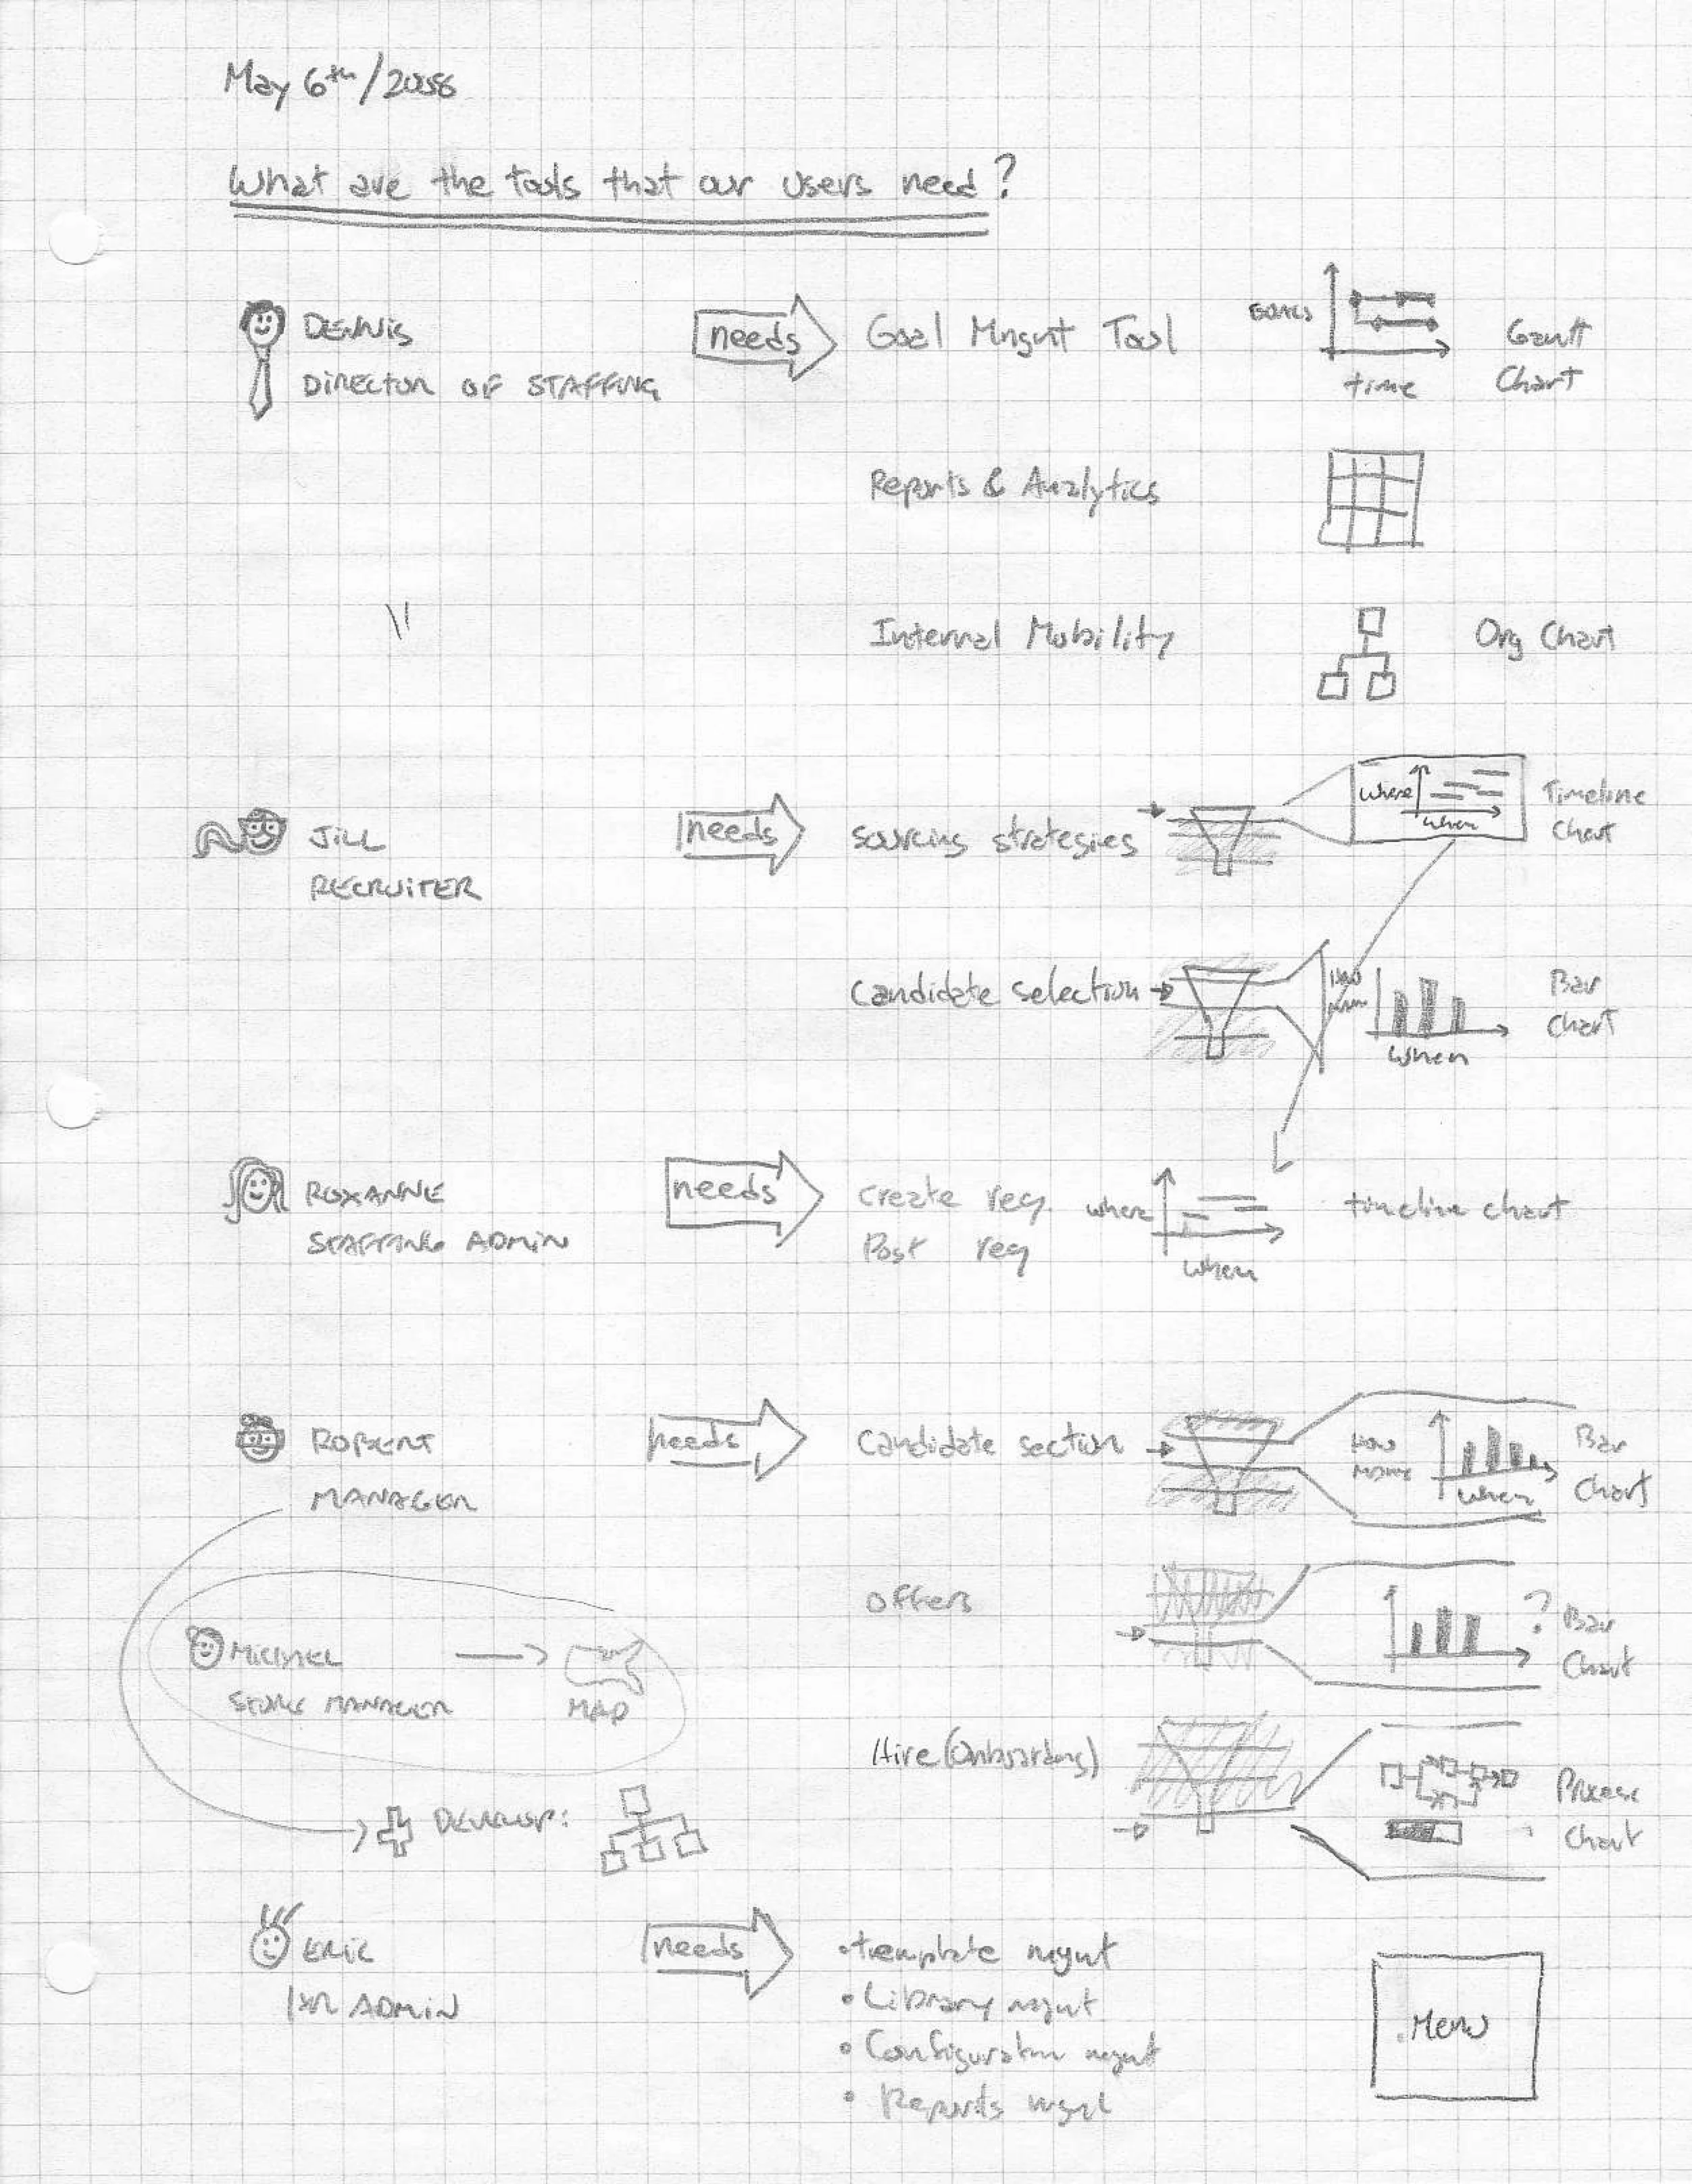 May 6th/2008
What are the tools that our users need?
DENNIS
DIRECTOR OF STAFFING
needs
Goal Mngmt Tool
GOALS
time
Gantt
Chart
Reports & Analytics
Internal Mobility
Org Chart
JILL
RECRUITER
needs
sourcing strategies
where
when
Timeline
Chart
Candidate selection
How
many
When
Bar
Chart
ROXANNE
STAFFING ADMIN
needs
create req.
Post req
where
when
timeline chart
ROBERT
MANAGER
needs
Candidate section
HOW
MANY
When
Bar
Chart
MICHAEL
STORE MANAGER
MAP
Offers
? Bar
Chart
Hire (Onboarding)
Process
Chart
DEVELOP:
ERIC
HR ADMIN
needs
• template mgmt
• Library mgmt
• Configuration mgmt
• Reports mgmt
Menu